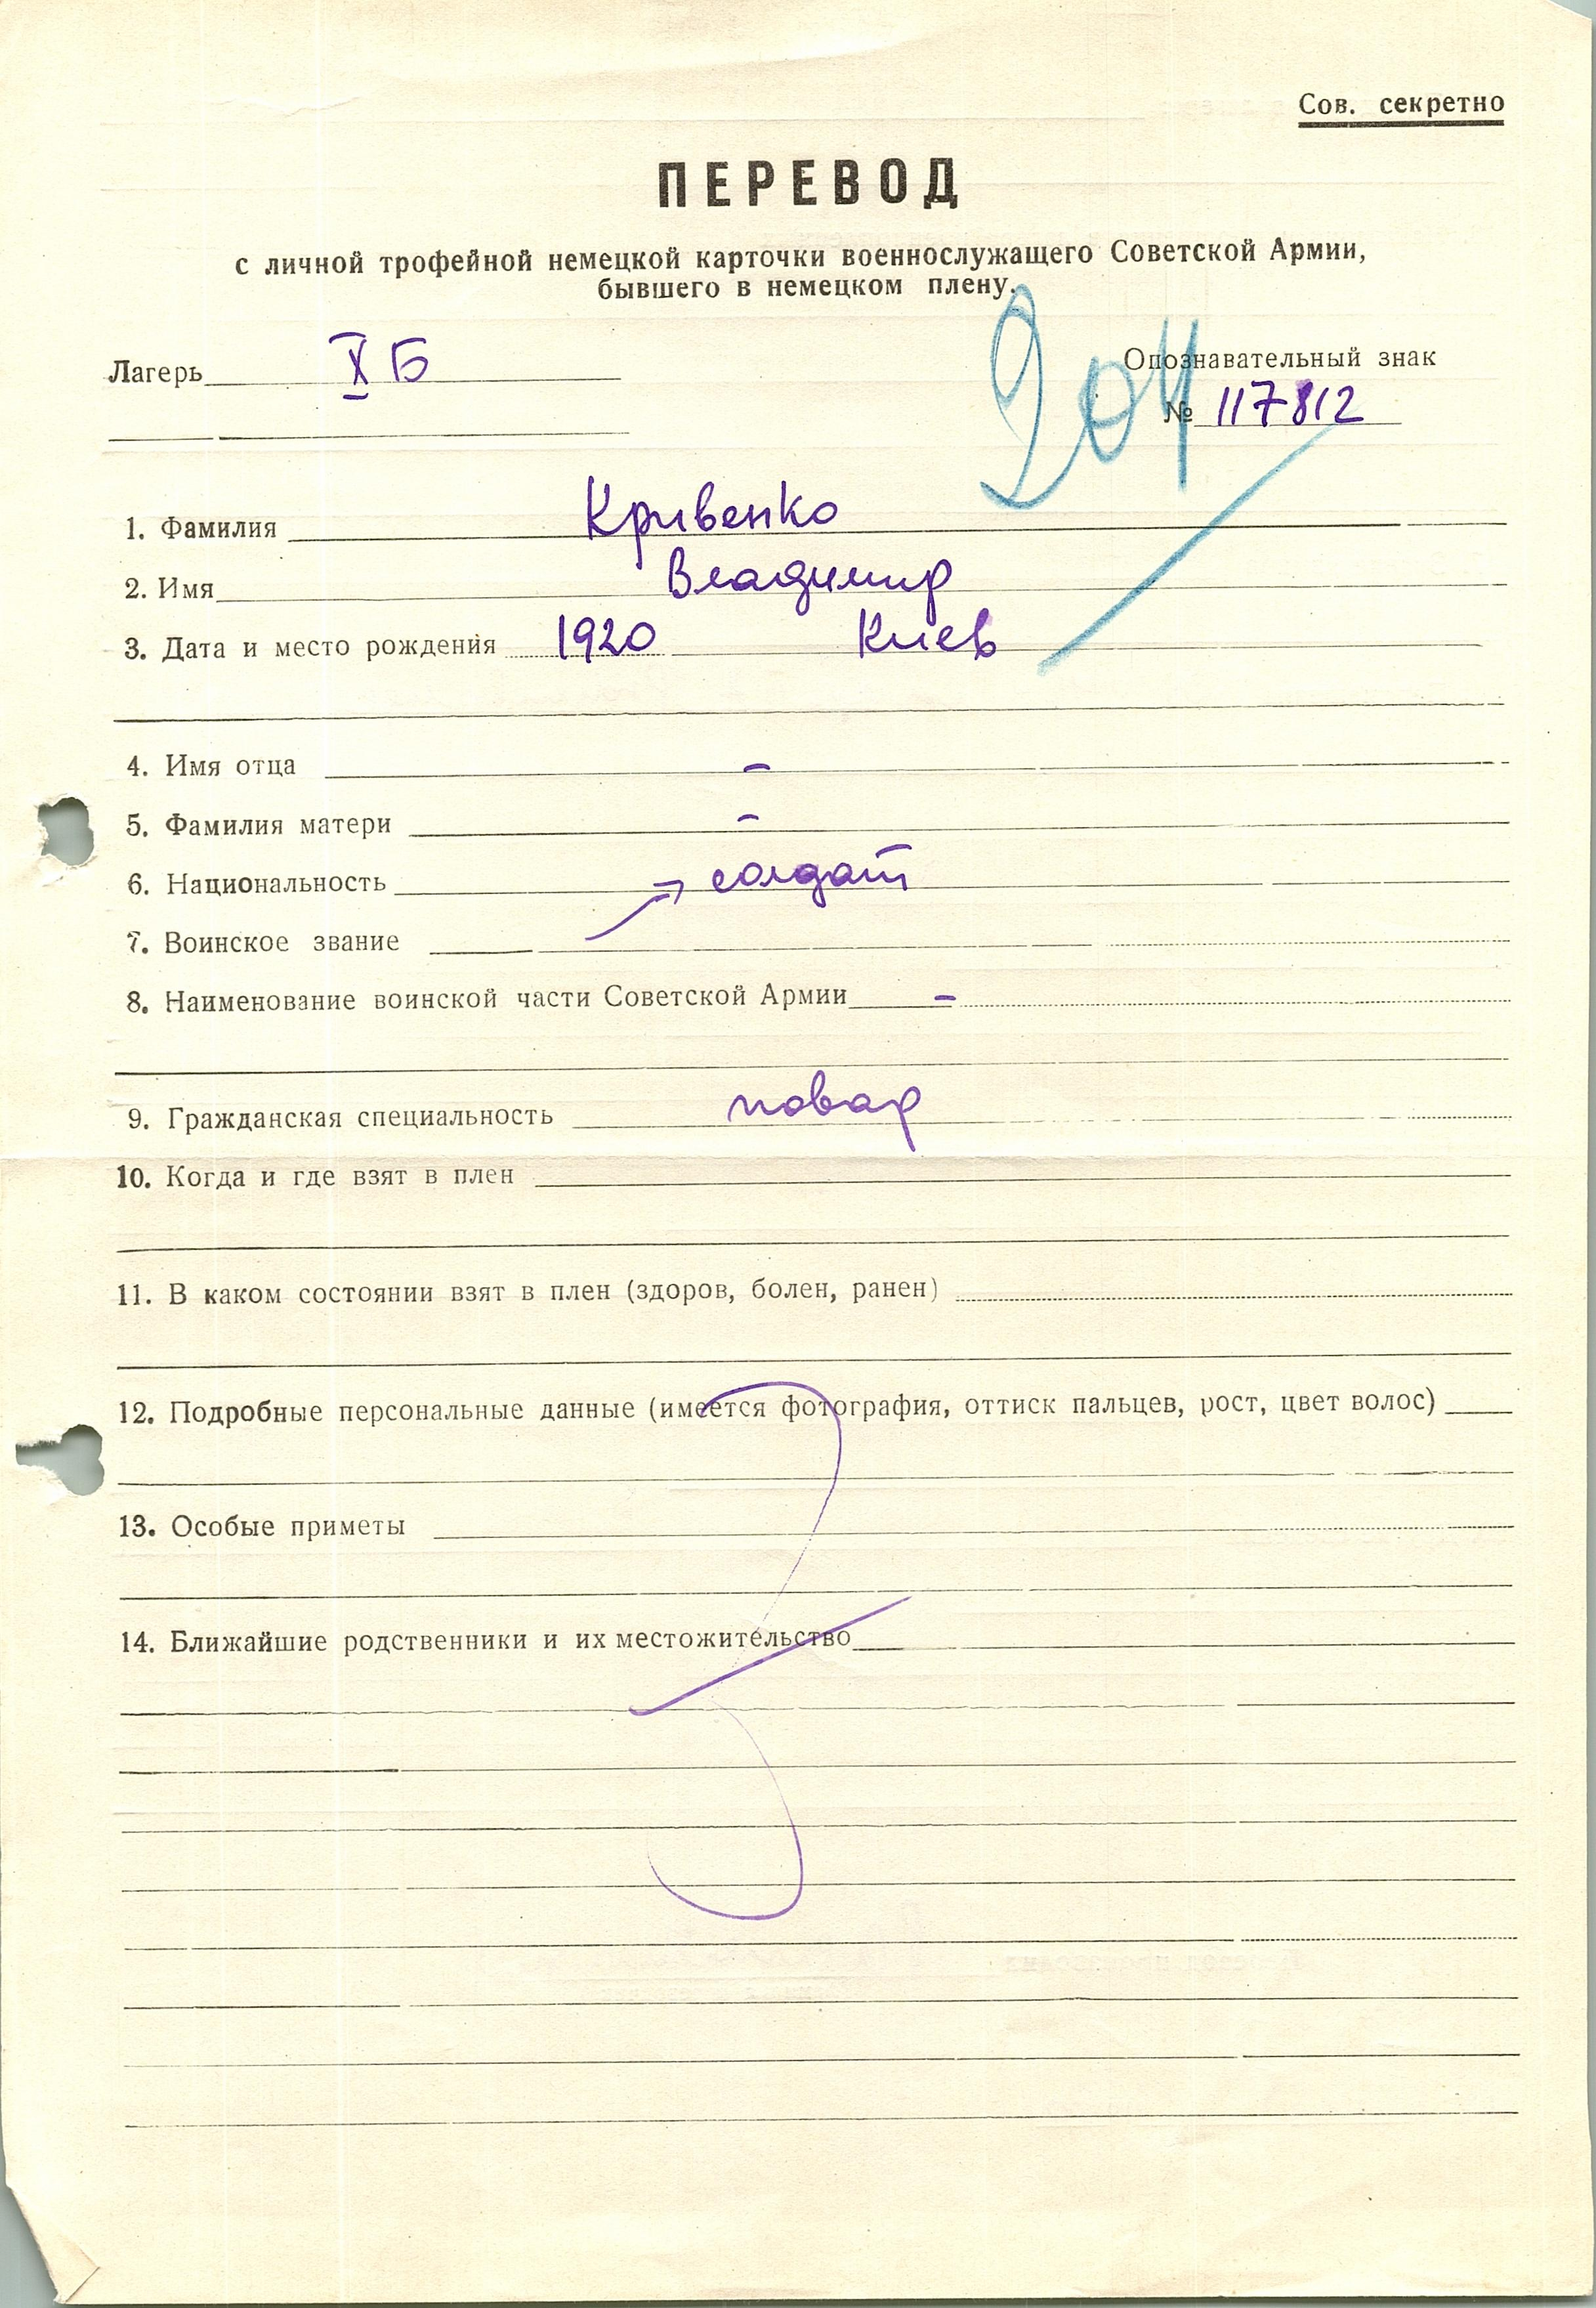 Сов. секретно
ПЕРЕВОД
с личной трофейной немецкой карточки военнослужащего Советской Армии,
бывшего в немецком плену.
Лагерь X Б
Опознавательный знак
№ 117812
1. Фамилия Кривенко
2. Имя Владимир
3. Дата и место рождения 1920 Киев
4. Имя отца –
5. Фамилия матери –
6. Национальность → солдат
7. Воинское звание
8. Наименование воинской части Советской Армии –
9. Гражданская специальность повар
10. Когда и где взят в плен
11. В каком состоянии взят в плен (здоров, болен, ранен)
12. Подробные персональные данные (имеется фотография, оттиск пальцев, рост, цвет волос)
13. Особые приметы
14. Ближайшие родственники и их местожительство